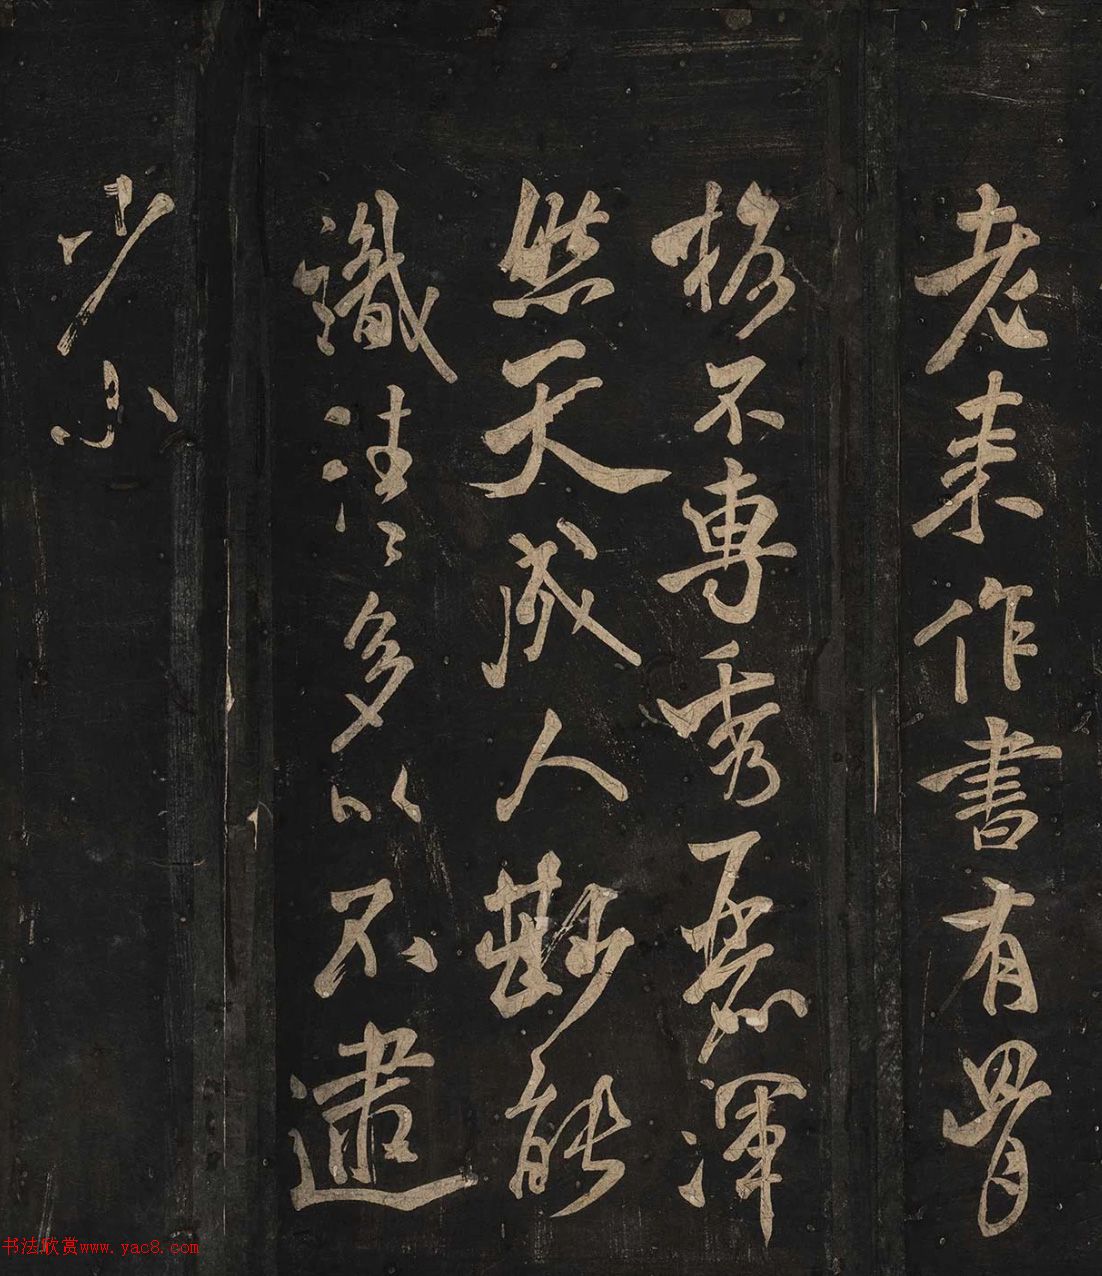 老来作書有骨
格不専秀孬渾
然天成人尠能
識法〻多以不逮
少小
书法欣赏www.yac8.com